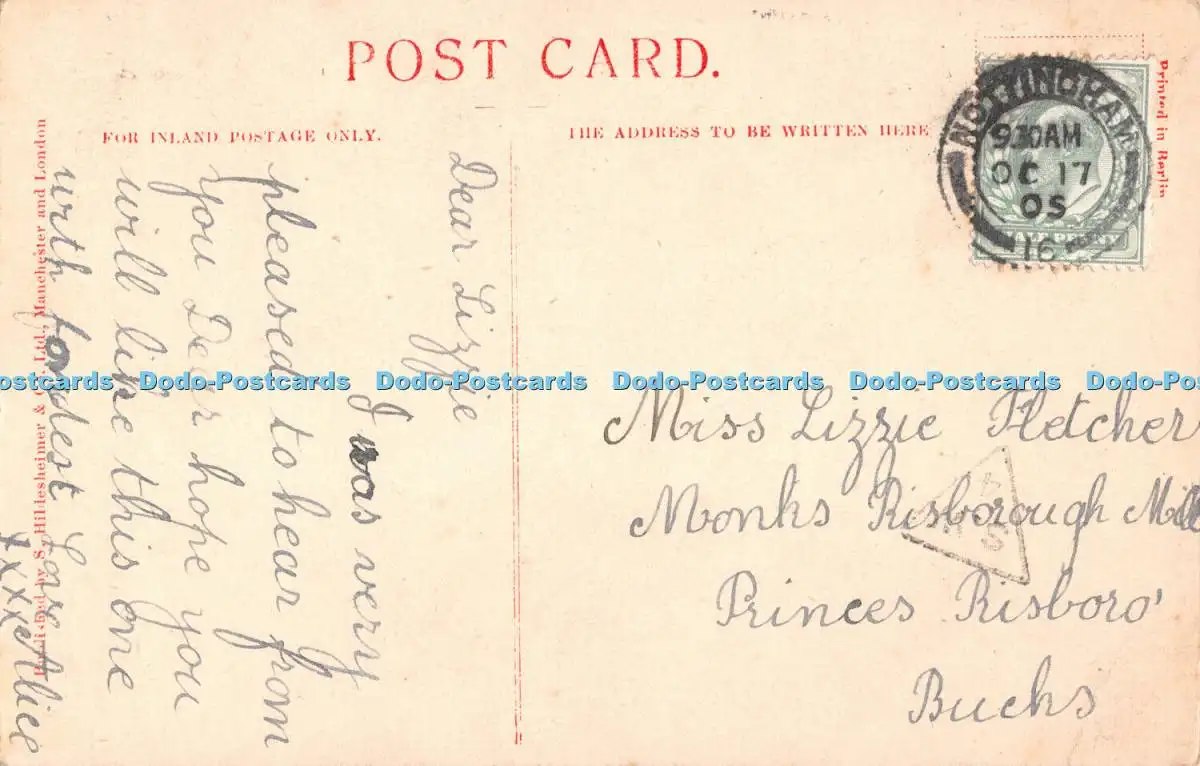 POST CARD.
FOR INLAND POSTAGE ONLY.
THE ADDRESS TO BE WRITTEN HERE
Printed in Berlin
NOTTINGHAM
9.30AM
OC 17
05
16
HALF PENNY
Dear Lizzie
I was very
pleased to hear from
you Dear hope you
will like this one
with fondest Love Alice
xxxx
Published by S. Hildesheimer & Co. Ltd., Manchester and London
Miss Lizzie Fletcher
Monks Risborough Mill
Princes Risboro'
Bucks
Dodo-Postcards Dodo-Postcards Dodo-Postcards Dodo-Postcards Dodo-Postcards